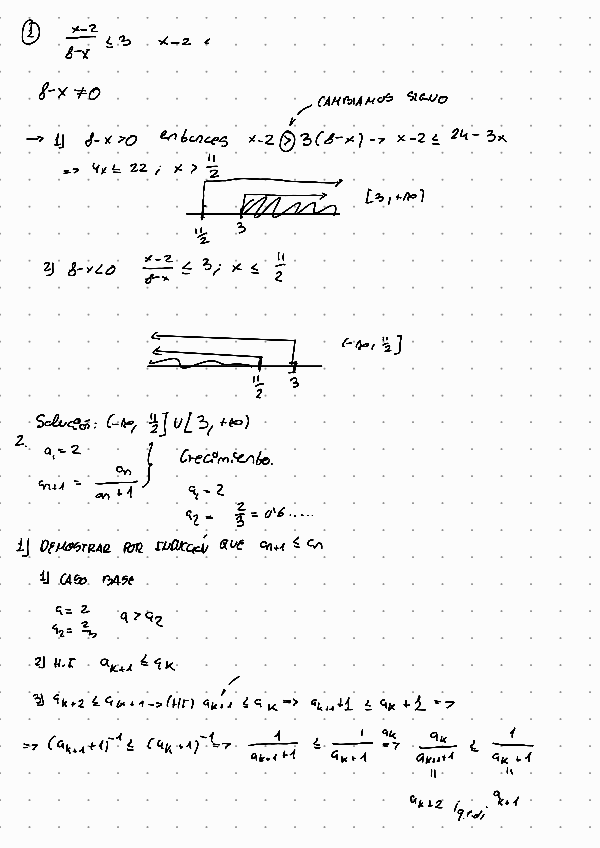 ① x-2/8-x ≤ 3 x-2 <
8-x ≠ 0
CAMBIAMOS SIGNO
→ 1) 8-x>0 entonces x-2 > 3(8-x) → x-2 ≤ 24-3x
=> 4x ≤ 22; x > 11/2
[3, +∞)
11/2 3
2) 8-x<0 x-2/8-x ≤ 3; x ≤ 11/2
(-∞, 11/2]
11/2 3
Solución: (-∞, 11/2] ∪ [3, +∞)
2. a₁ = 2
aₙ₊₁ = aₙ/aₙ+1 } Crecimiento.
a₁ = 2
a₂ = 2/3 = 0'6.....
1) DEMOSTRAR POR INDUCCIÓN QUE aₙ₊₁ ≤ aₙ
1) CASO BASE
a = 2
a₂ = 2/3 a > a₂
2) H.I aₖ₊₁ ≤ aₖ
3) aₖ₊₂ ≤ aₖ₊₁ → (HI) aₖ₊₁ ≤ aₖ => aₖ₊₁+1 ≤ aₖ+1 =>
=> (aₖ₊₁+1)⁻¹ ≤ (aₖ+1)⁻¹ => 1/aₖ₊₁+1 ≤ 1/aₖ+1 aₖ => aₖ/aₖ₊₁+1 ≤ 1/aₖ+1
= =
aₖ₊₂ (q.e.d) aₖ₊₁